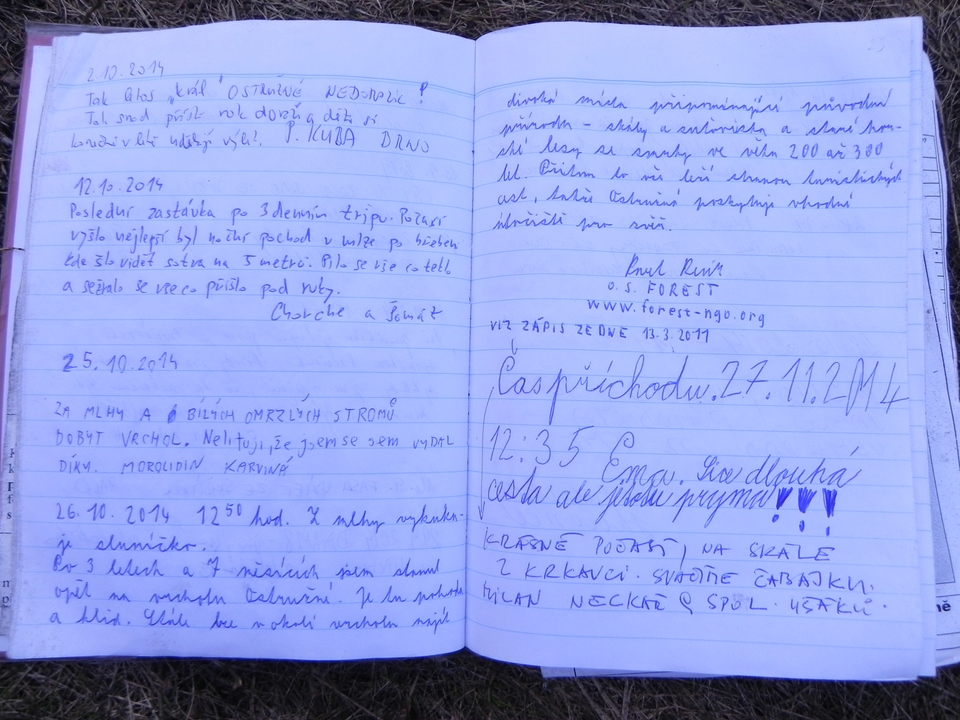 2.10.2014
Tak letos „král“ OSTRUŽNÉ NEDORAZIL!
Tak snad příští rok dorazí a dětí si
P. KUBA BRNO
12.10.2014
Poslední zastávka po 3 denním tripu. Počasí
vyšlo nejlepší byl noční pochod v mlze po hřeben
kde šlo vidět sotva na 5 metrů. Pilo se vše co teklo
a sežralo se vše co přišlo pod ruky.
Chorche a Šomát
25.10.2014
ZA MLHY A BÍLÝCH OMRZLÝCH STROMŮ
DOBYT VRCHOL. Nelituji, že jsem se sem VYDAL
DÍKY. MOROLIDIN KARVINÁ
26.10.2014 12 50 hod. Z mlhy vykuku-
je sluníčko.
Po 3 letech a 7 měsících jsem stanul
opět na vrcholu Ostružné. Je tu pohoda
a klid. Stále lze v okolí vrcholu najít
divoká místa připomínající původní
přírodu – skály a suťoviska a staré hor-
ské lesy se smrky ve věku 200 až 300
let. Přitom to vše leží stranou turistických
cest, takže Ostružná poskytuje vhodné
útočiště pro zvěř.
Pavel
O.S. FOREST
www.forest-ngo.org
VIZ ZÁPIS ZE DNE 13.3.2011
Čas příchodu. 27.11.2014
12:35 Ema. Sice dlouhá
cesta ale je to tu pryma!!!
KRÁSNÉ POČASÍ, NA SKÁLE
2 KRKAVCI. SVAČÍME ČABAJKU.
MILAN NECKAŘ & SPOL. UŠÁKŮ.
ně